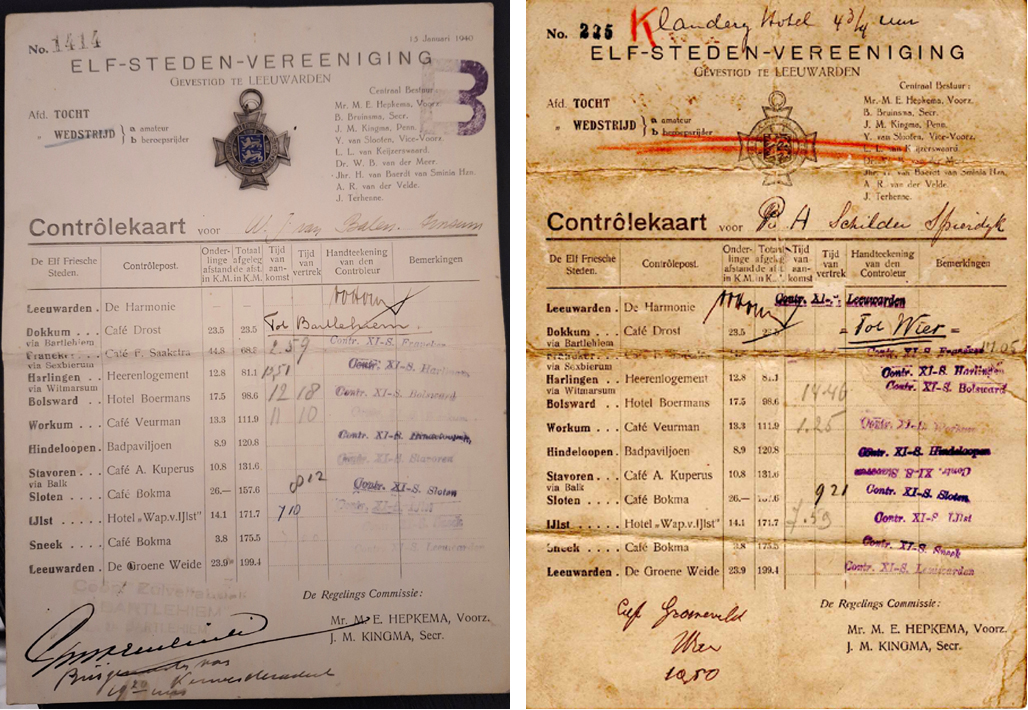 No. 1414
15 Januari 1940
ELF-STEDEN-VEREENIGING
GEVESTIGD TE LEEUWARDEN
B
Centraal Bestuur:
Mr. M. E. Hepkema, Voorz.
B. Bruinsma, Secr.
J. M. Kingma, Penn.
Y. van Slooten, Vice-Voorz.
L. L. van Keijzerswaard.
Dr. W. B. van der Meer.
Jhr. H. van Baerdt van Sminia Hzn.
A. R. van der Velde.
J. Terhenne.
Afd. TOCHT
„ WEDSTRIJD } a amateur
b beroepsrijder
Contrôlekaart voor W. J. van Balen
De Elf Friesche Steden. Contrôlepost. Onderlinge afstand in K.M. Totaal afgelegde afst. in K.M. Tijd van aankomst Tijd van vertrek Handteekening van den Controleur Bemerkingen
Leeuwarden . De Harmonie
Dokkum . . . Café Drost 23.5 23.5 Tot Bartlehiem.
via Bartlehiem
Franeker . . Café F. Saakstra 44.8 68.2 2.59 Contr. XI-S. Franeker
via Sexbierum
Harlingen . . Heerenlogement 12.8 81.1 Contr. XI-S. Harlingen
via Witmarsum
Bolsward . . Hotel Boermans 17.5 98.6 12 18 Contr. XI-S. Bolsward
Workum . . . Café Veurman 13.3 111.9 11 10
Hindeloopen . Badpaviljoen 8.9 120.8 Contr. XI-S. Hindeloopen
Stavoren . . . Café A. Kuperus 10.8 131.6 Contr. XI-S. Stavoren
via Balk
Sloten . . . . Café Bokma 26.— 157.6 8 12 Contr. XI-S. Sloten
IJlst . . . . . Hotel „Wap.v.IJlst” 14.1 171.7 7 10 Contr. XI-S. IJlst
Sneek . . . . Café Bokma 3.8 175.5
Leeuwarden . De Groene Weide 23.9 199.4 Contr. XI-S. Leeuwarden
BARTLEHIEM
De Regelings Commissie:
Mr. M. E. HEPKEMA, Voorz.
J. M. KINGMA, Secr.
No. 225 Hotel 4 3/4 uur
ELF-STEDEN-VEREENIGING
GEVESTIGD TE LEEUWARDEN
Centraal Bestuur:
Mr. M. E. Hepkema, Voorz.
B. Bruinsma, Secr.
J. M. Kingma, Penn.
Y. van Slooten, Vice-Voorz.
L. L. van Keijzerswaard.
Dr. W. B. van der Meer.
Jhr. H. van Baerdt van Sminia Hzn.
A. R. van der Velde.
J. Terhenne.
Afd. TOCHT
„ WEDSTRIJD } a amateur
b beroepsrijder
Contrôlekaart voor P. A Schilder Spierdyk
De Elf Friesche Steden. Contrôlepost. Onderlinge afstand in K.M. Totaal afgelegde afst. in K.M. Tijd van aankomst Tijd van vertrek Handteekening van den Controleur Bemerkingen
Leeuwarden . De Harmonie Contr. XI-S. Leeuwarden
Dokkum . . . Café Drost 23.5 23.5 = Tot Wier =
via Bartlehiem
Franeker . . Contr. XI-S. Franeker 17.05
via Sexbierum
Harlingen . . Heerenlogement 12.8 81.1 Contr. XI-S. Harlingen
via Witmarsum
Bolsward . . Hotel Boermans 17.5 98.6 14.46 Contr. XI-S. Bolsward
Workum . . . Café Veurman 13.3 111.9 1.25 Contr. XI-S. Workum
Hindeloopen . Badpaviljoen 8.9 120.8 Contr. XI-S. Hindeloopen
Stavoren . . . Café A. Kuperus 10.8 131.6 Contr. XI-S. Stavoren
via Balk
Sloten . . . . Café Bokma 26.— 157.6 9 21 Contr. XI-S. Sloten
IJlst . . . . . Hotel „Wap.v.IJlst” 14.1 171.7 7.59 Contr. XI-S IJlst
Sneek . . . . Café Bokma 3.8 175.5 Contr. XI-S. Sneek
Leeuwarden . De Groene Weide 23.9 199.4 Contr. XI-S. Leeuwarden
De Regelings Commissie:
Mr. M. E. HEPKEMA, Voorz.
J. M. KINGMA, Secr.
Wier
10,50